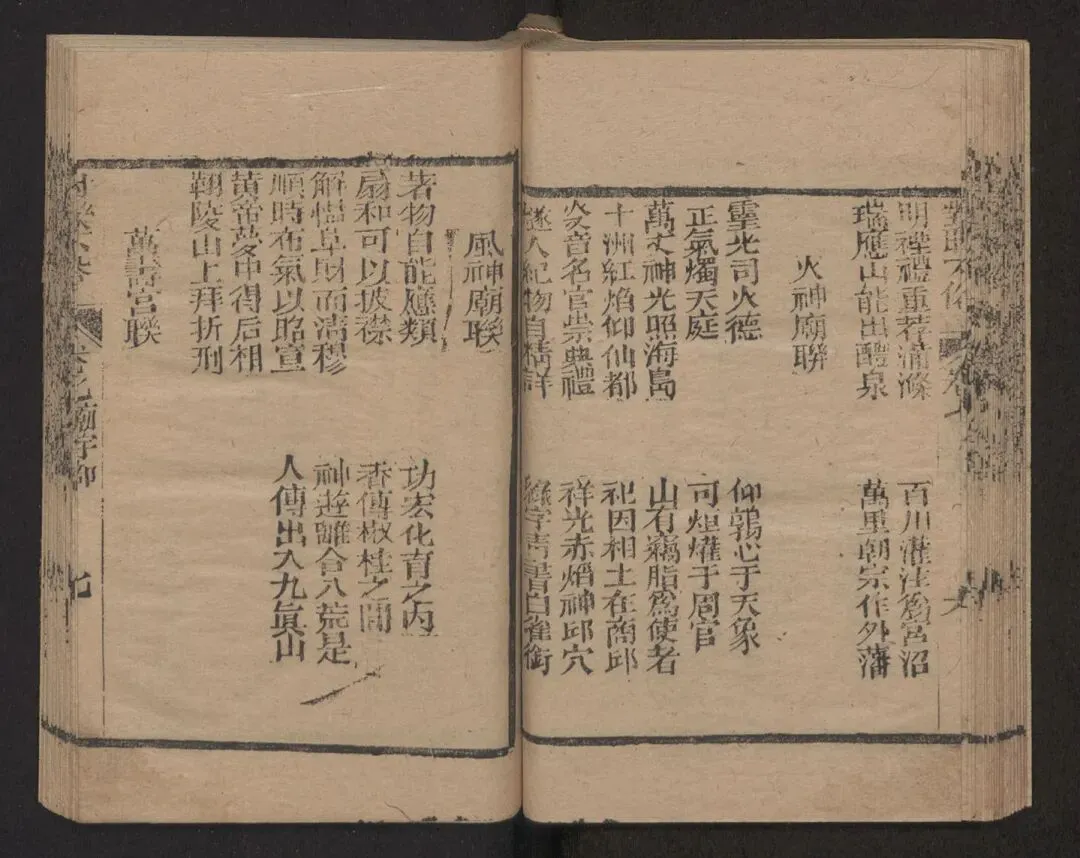 明禋禮重薦蒲滌　百川灌注爲宮沼
瑞應山能出醴泉　萬里朝宗作外藩
火神廟聯
靈光司火德　仰鶉心于天象
正氣燭天庭　可烜爟于周官
萬丈神光照海島　山有脂爲使者
十洲紅焰仰仙都　祀因相土在商邱
炎音名官崇典禮　祥光赤熖神邱穴
燧人紀物自精詳　字靑書白雀銜
風神廟聯
若物自能應類　功宏化育之內
扇和可以披襟　香傳椒桂之間
解慍阜財而淸穆　神遊離合八荒是
順時布氣以昭宣　人傳出入九眞山
黃帝夢中得后相
翱陵山上拜折刑
萬壽宮聯
廟宇
七